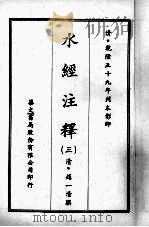 清·乾隆五十九年刊本影印
水經注釋
(三) 清·趙一清撰
華文書局股份有限公司印行